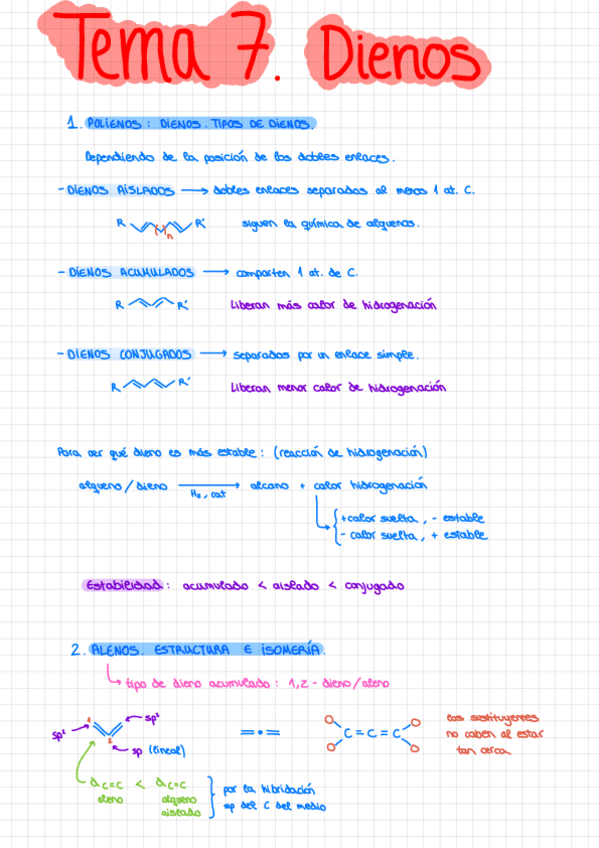 Tema 7. Dienos
1. POLIENOS: DIENOS. TIPOS DE DIENOS.
Dependiendo de la posición de los dobles enlaces.
- DIENOS AISLADOS → dobles enlaces separados al menos 1 at. C.
R R' siguen la química de alquenos.
n
- DIENOS ACUMULADOS → comparten 1 at. de C.
R R' Liberan más calor de hidrogenación
- DIENOS CONJUGADOS → separados por un enlace simple.
R R' Liberan menor calor de hidrogenación
Para ver qué dieno es más estable: (reacción de hidrogenación)
alqueno/dieno → alcano + calor hidrogenación
H₂, cat
+calor suelta, - estable
- calor suelta, + estable
Estabilidad: acumulado < aislado < conjugado
2. ALENOS. ESTRUCTURA E ISOMERÍA.
tipo de dieno acumulado: 1,2 - dieno/aleno
sp² 1 sp² = • = C = C = C los sustituyentes
2 sp (lineal) no caben al estar
tan cerca
d C=C < d C=C por la hibridación
aleno alqueno sp del C del medio
aislado